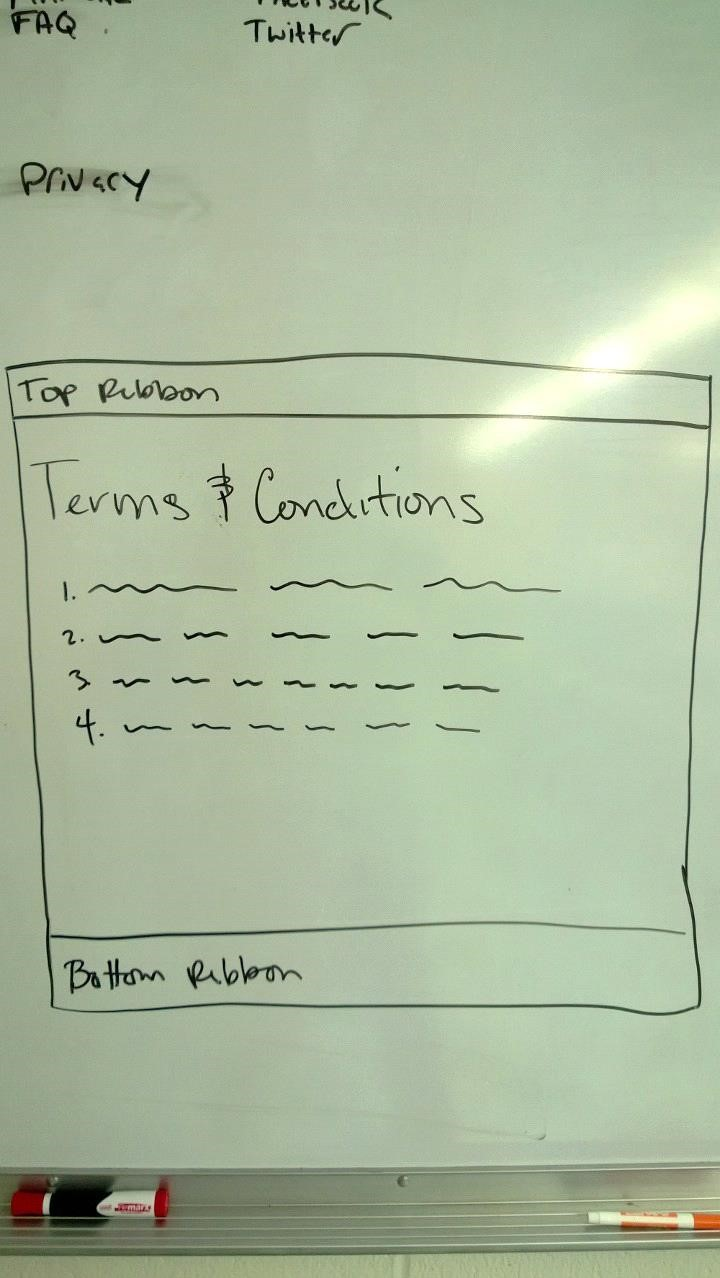 FAQ
Twitter
Privacy
Top Ribbon
Terms & Conditions
1.
2.
3.
4.
Bottom Ribbon